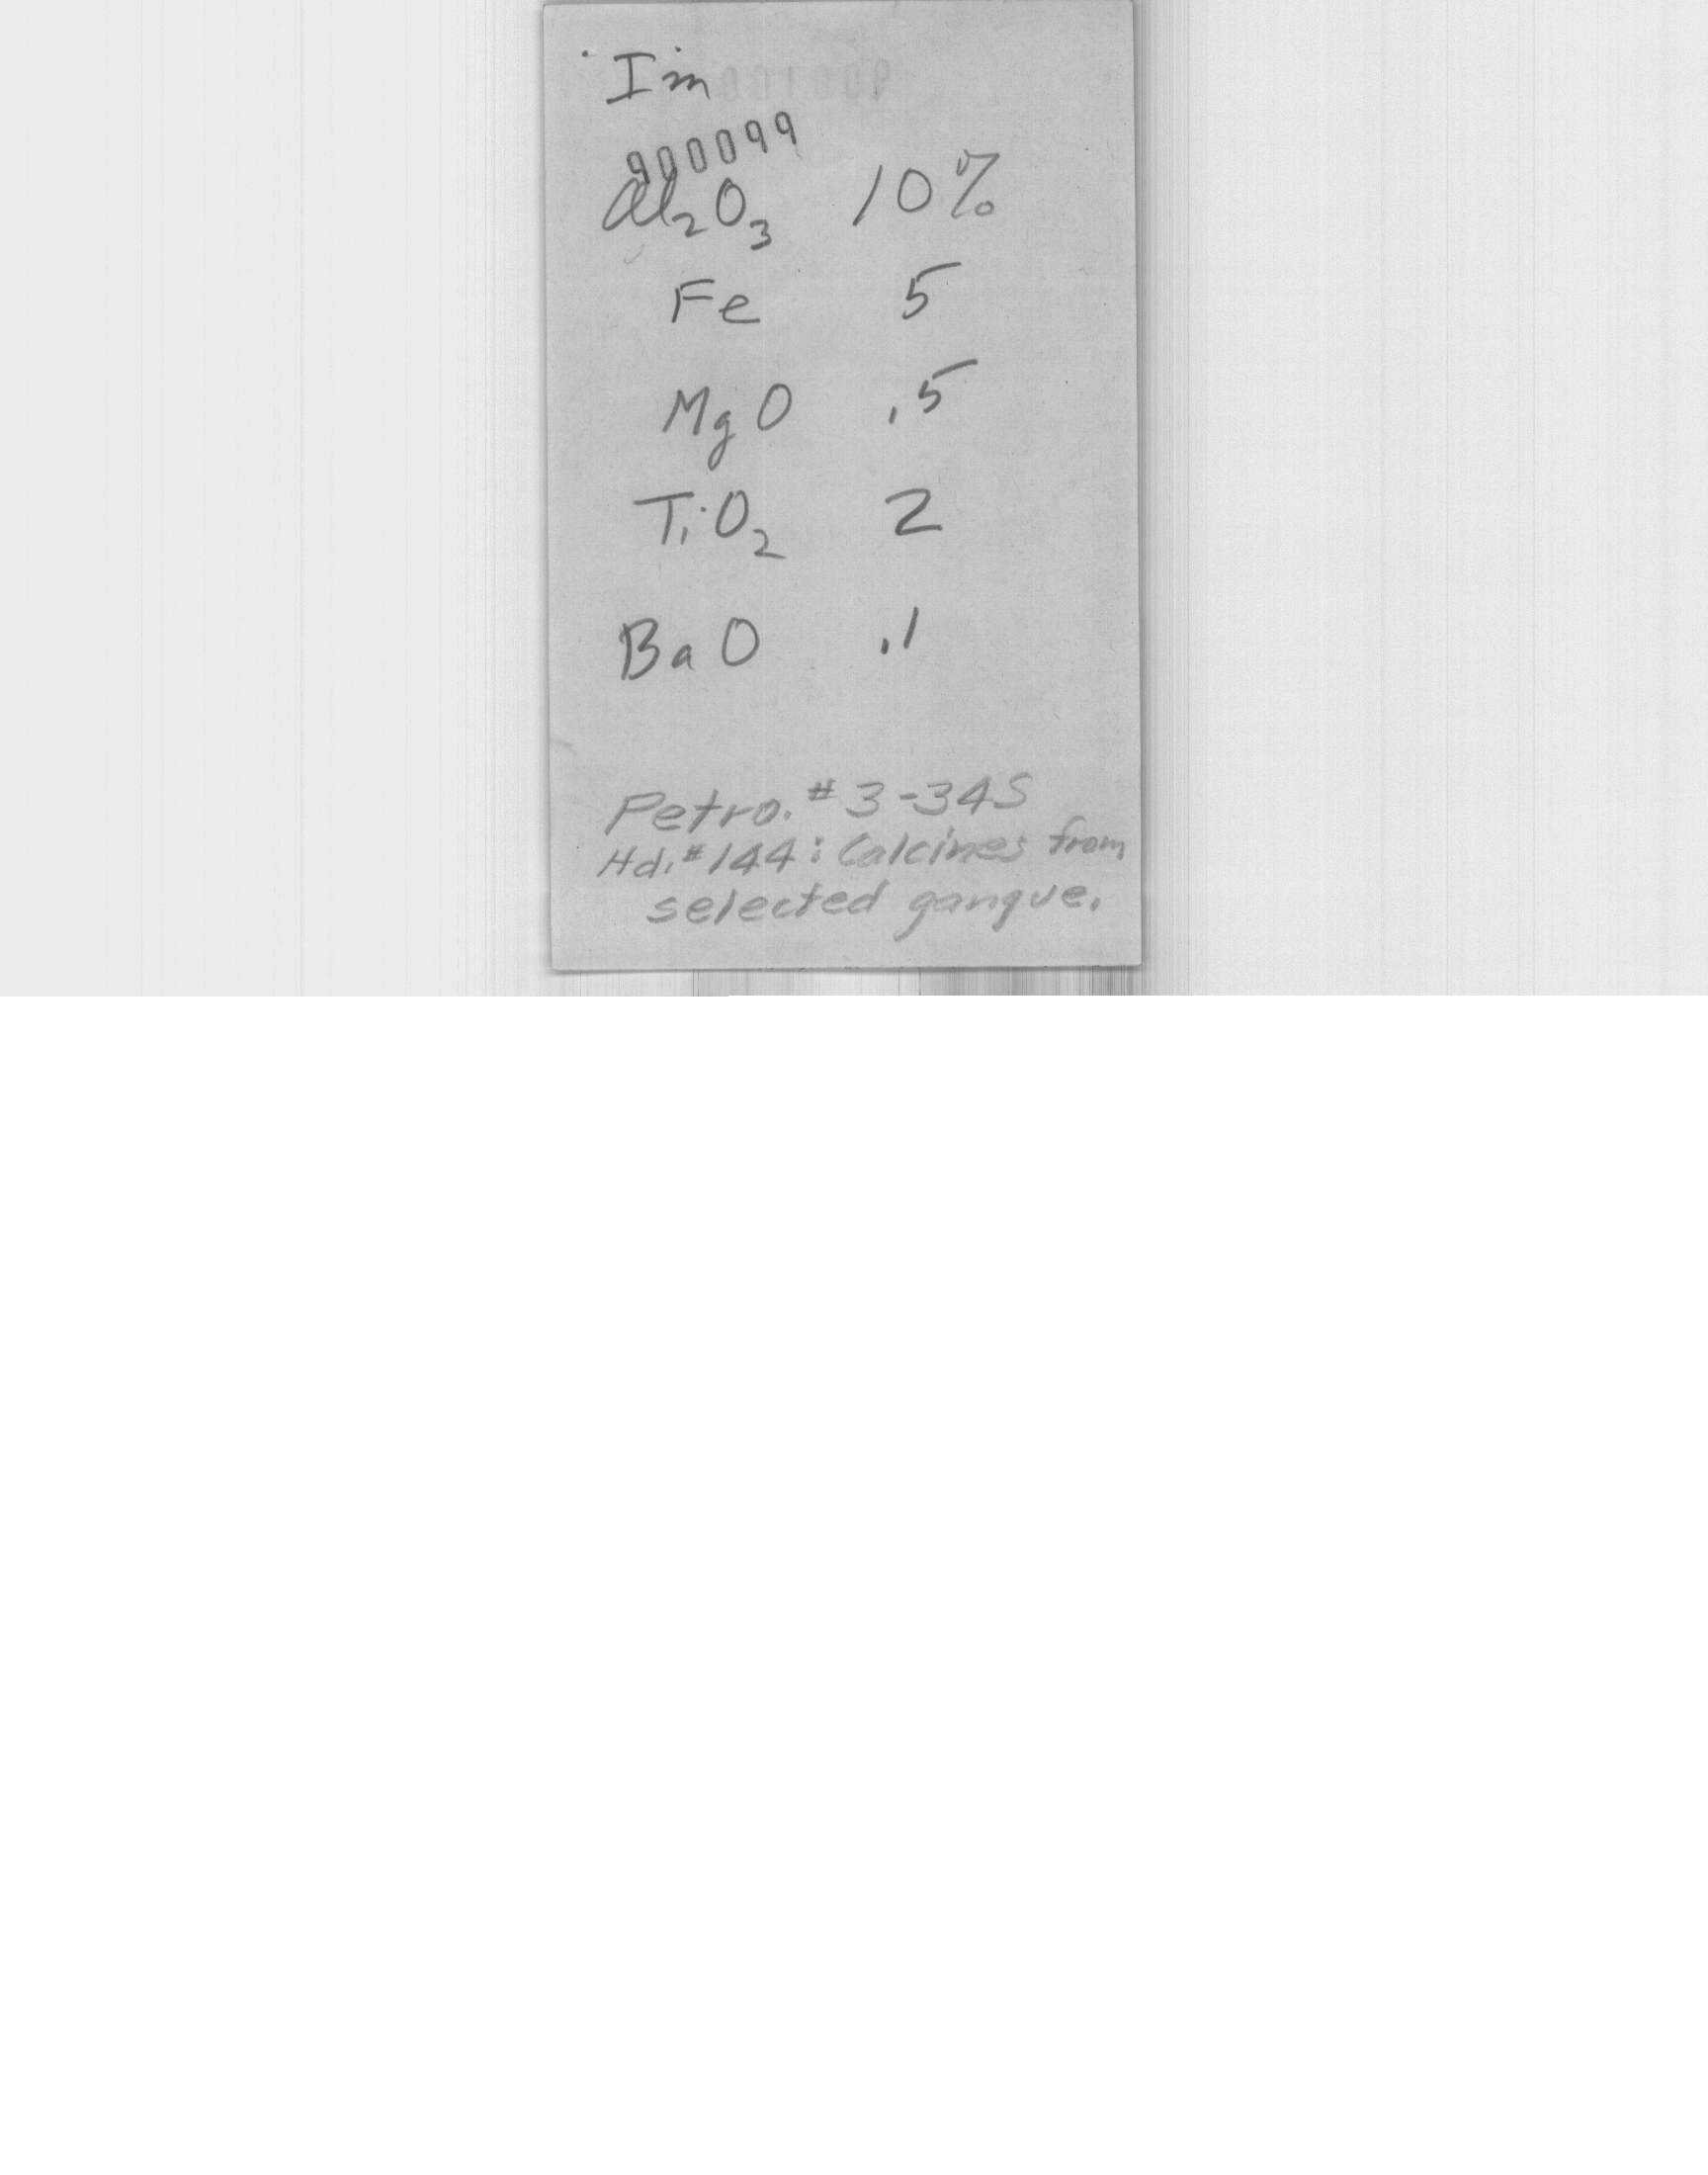 Im
900099
Al₂O₃ 10%
Fe 5
MgO .5
TiO₂ 2
BaO .1
Petro. # 3-34S
Hd. # 144: Calcines from
selected gangue.